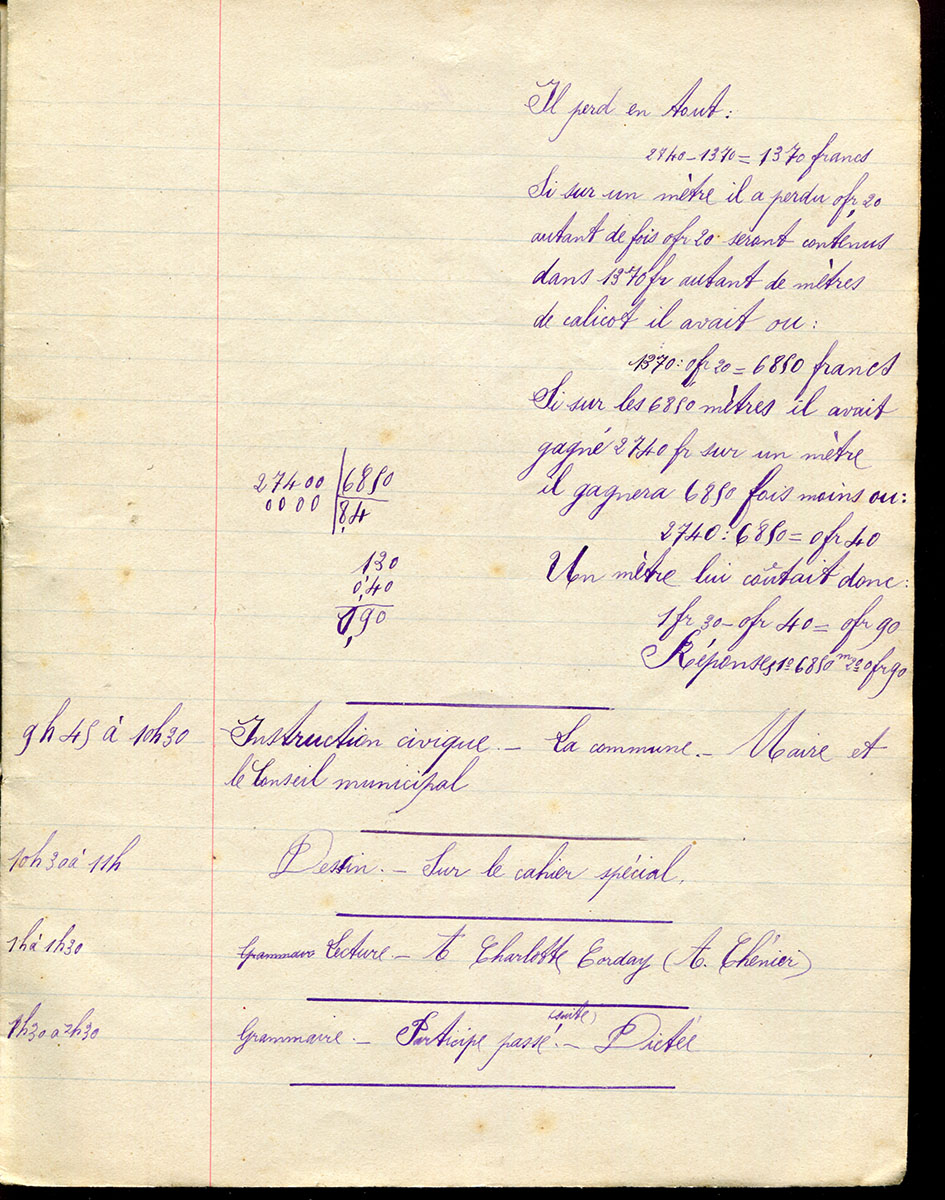 Il perd en tout:
2740 - 1370 = 1370 francs
Si sur un mètre il a perdu 0fr,20
autant de fois 0fr 20 seront contenus
dans 1370fr autant de mètres
de calicot il avait ou:
1370 : 0fr 20 = 6850 francs
Si sur les 6850 mètres il avait
gagné 2740 fr sur un mètre
il gagnera 6850 fois moins ou:
2740 : 6850 = 0fr 40
Un mètre lui coûtait donc:
1fr 30 - 0fr 40 = 0fr 90
Réponses 1º 6850 m 2º 0fr90
27400 | 6850
0000 | 0,4
130
0,40
0,90
9h45 à 10h30 Instruction civique. - La commune. - Maire et
le Conseil municipal
10h30 à 11h Dessin. - Sur le cahier spécial.
1h à 1h30 Grammaire Lecture - A Charlotte Corday (A. Chénier)
1h30 à 2h30 Grammaire. - Participe passé (suite). - Dictée